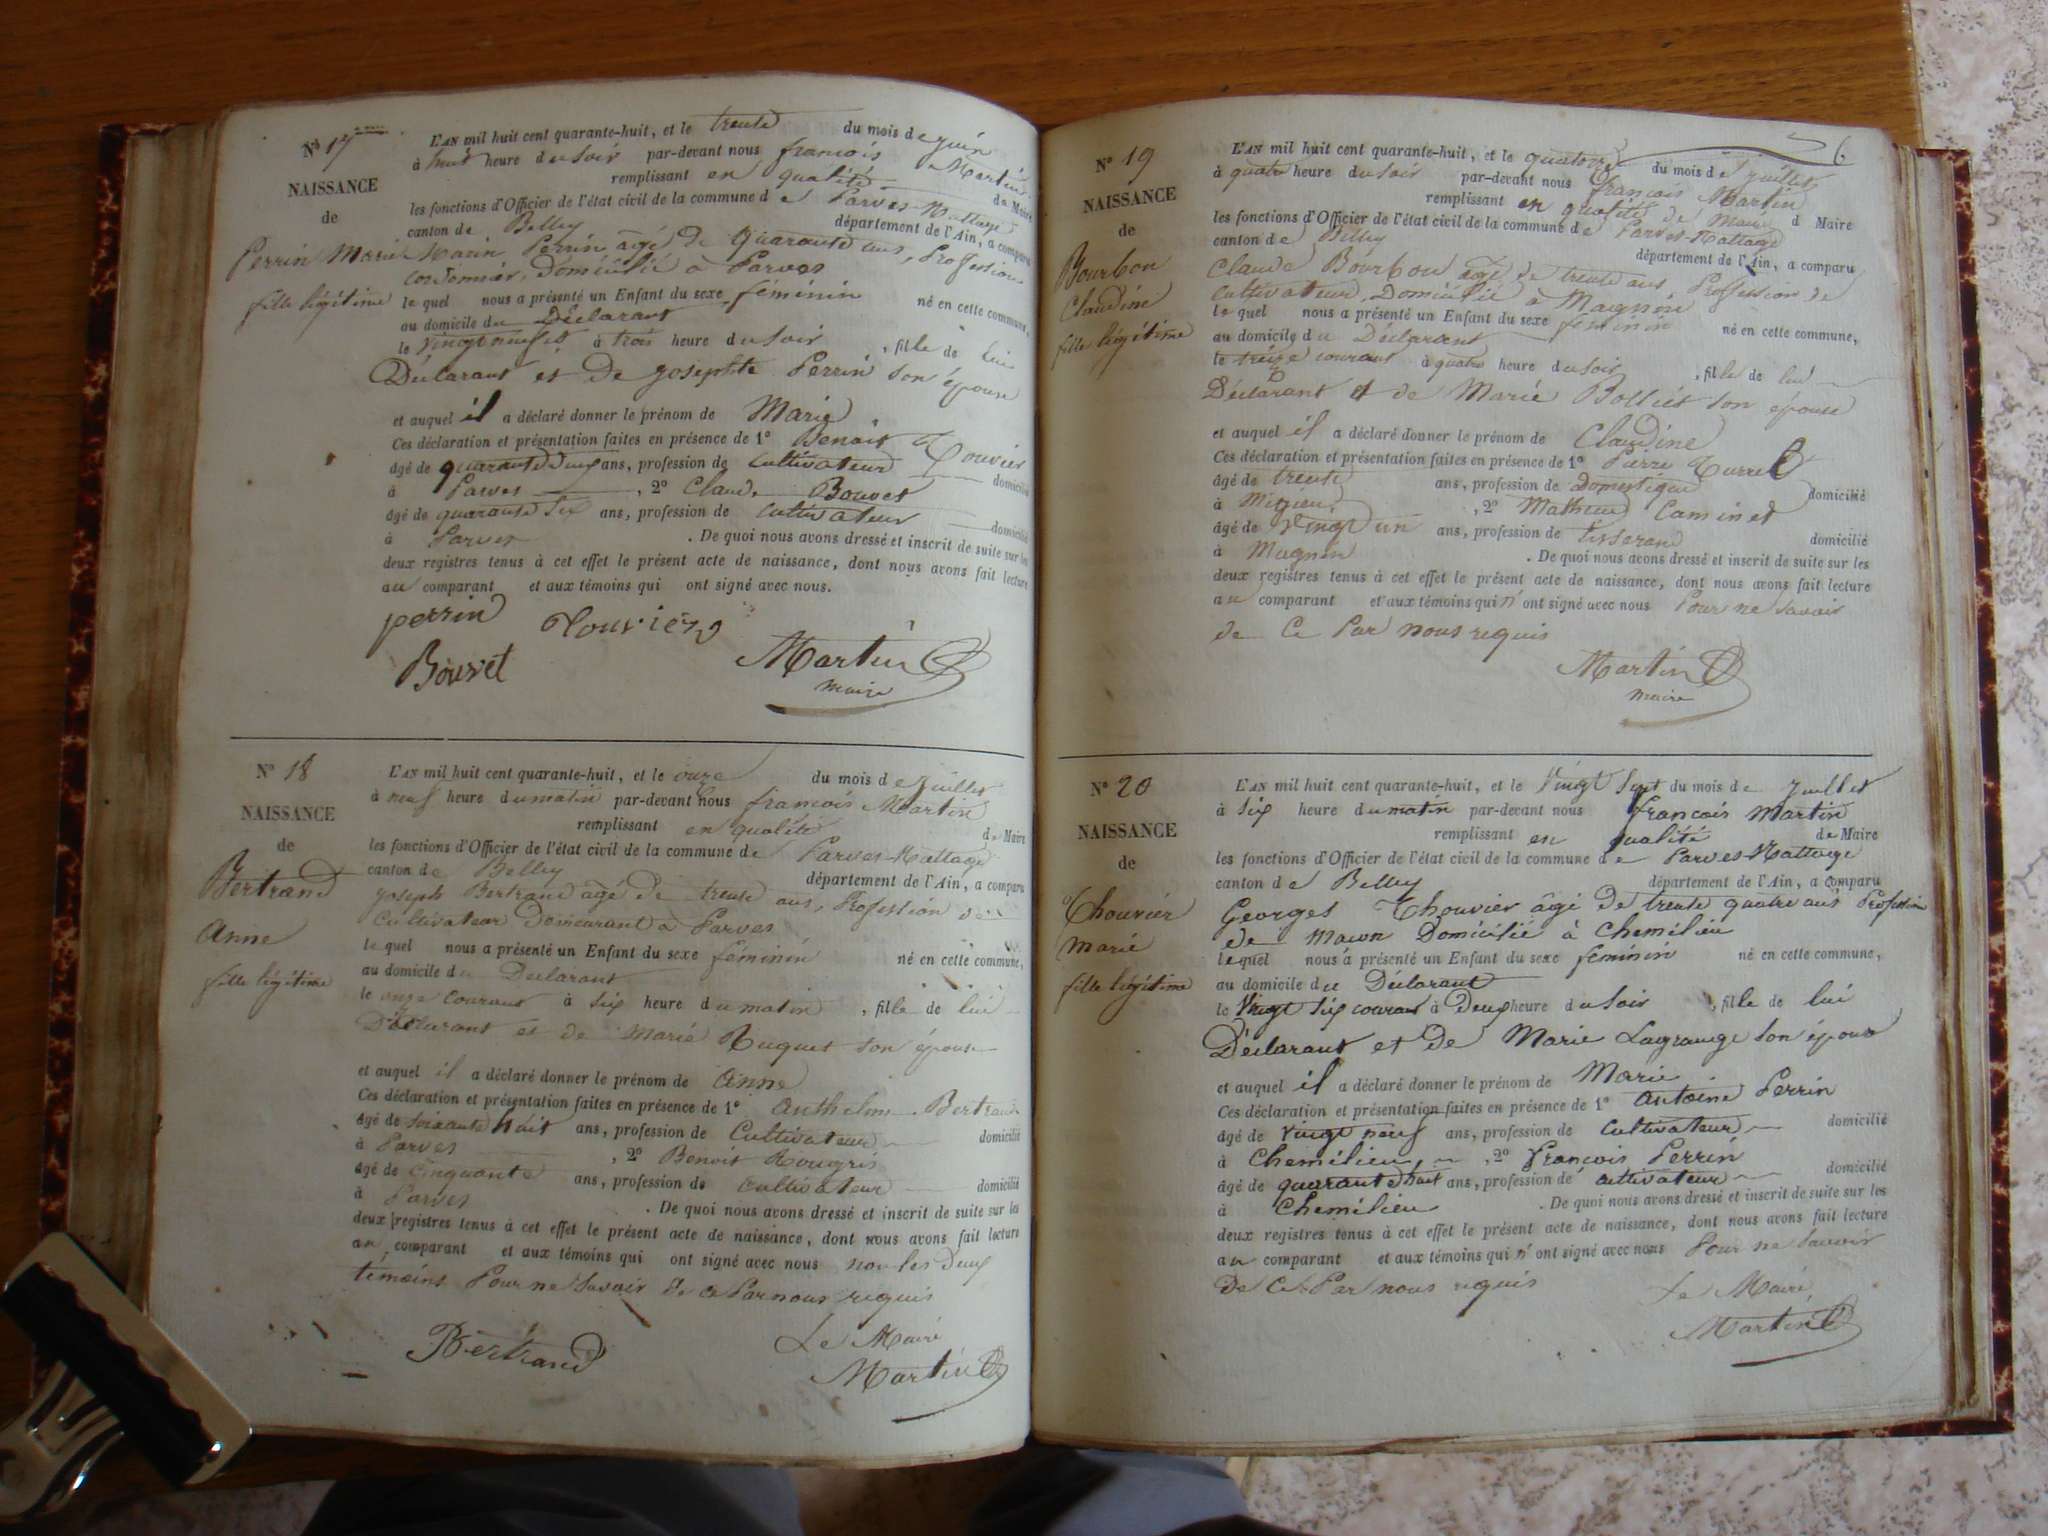 N° 17
NAISSANCE
de
Perrin Marie
fille légitime
L'AN mil huit cent quarante-huit, et le trente du mois de juin
à huit heure du soir par-devant nous françois Martin
remplissant en qualité de Maire
les fonctions d'Officier de l'état civil de la commune de Parves-Nattage
canton de Belley département de l'Ain, a comparu
Marin Perrin âgé de quarante ans, Profession
cordonnier, domicilié à Parves
le quel nous a présenté un Enfant du sexe féminin né en cette commune,
au domicile du Déclarant
le vingt neuf à trois heure du soir, fille de lui
Déclarant et de josephte Perrin son épouse
et auquel il a déclaré donner le prénom de Marie
Ces déclaration et présentation faites en présence de 1° Benoit Touvier
âgé de quarante deux ans, profession de cultivateur domicilié
à Parves, 2° Claude Bouvet
âgé de quarante six ans, profession de cultivateur domicilié
à Parves. De quoi nous avons dressé et inscrit de suite sur les
deux registres tenus à cet effet le présent acte de naissance, dont nous avons fait lecture
au comparant et aux témoins qui ont signé avec nous.
perrin Touvier
Bouvet Martin
maire
N° 18
NAISSANCE
de
Bertrand
Anne
fille légitime
L'AN mil huit cent quarante-huit, et le onze du mois de juillet
à neuf heure du matin par-devant nous françois Martin
remplissant en qualité de Maire
les fonctions d'Officier de l'état civil de la commune de Parves-Nattage
canton de Belley département de l'Ain, a comparu
joseph Bertrand âgé de trente ans, Profession de
cultivateur Demeurant à Parves
le quel nous a présenté un Enfant du sexe féminin né en cette commune,
au domicile du Déclarant
le onze courant à six heure du matin, fille de lui
Déclarant et de Marie Huguet son épouse
et auquel il a déclaré donner le prénom de Anne
Ces déclaration et présentation faites en présence de 1° Anthelme Bertrand
âgé de soixante huit ans, profession de Cultivateur domicilié
à Parves, 2° Benoit
âgé de cinquante ans, profession de cultivateur domicilié
à Parves. De quoi nous avons dressé et inscrit de suite sur les
deux registres tenus à cet effet le présent acte de naissance, dont nous avons fait lecture
au comparant et aux témoins qui ont signé avec nous non les deux
témoins Pour ne savoir de ce Par nous requis
Le Maire
Bertrand Martin
6
N° 19
NAISSANCE
de
Bourbon
Claudine
fille légitime
L'AN mil huit cent quarante-huit, et le quatorze du mois de juillet
à quatre heure du soir par-devant nous françois Martin
remplissant en qualité de Maire d Maire
les fonctions d'Officier de l'état civil de la commune de Parves-Nattage
canton de Belley département de l'Ain, a comparu
Claude Bourbon âgé de trente ans, Profession de
cultivateur, Domicilié à Magnin
le quel nous a présenté un Enfant du sexe féminin né en cette commune,
au domicile du Déclarant
le treize courant à quatre heure du soir, fille de lui
Déclarant et de Marie Bolliet son épouse
et auquel il a déclaré donner le prénom de Claudine
Ces déclaration et présentation faites en présence de 1° Pierre Turrel
âgé de trente ans, profession de Domestique domicilié
à, 2° Mathieu Caminet
âgé de Vingt un ans, profession de tisserand domicilié
à Magnin. De quoi nous avons dressé et inscrit de suite sur les
deux registres tenus à cet effet le présent acte de naissance, dont nous avons fait lecture
au comparant et aux témoins qui n'ont signé avec nous Pour ne savoir
de Ce Par nous requis
Martin
maire
N° 20
NAISSANCE
de
Thouvier
Marie
fille légitime
L'AN mil huit cent quarante-huit, et le Vingt Sept du mois de juillet
à six heure du matin par-devant nous françois Martin
remplissant en qualité de Maire
les fonctions d'Officier de l'état civil de la commune de Parves-Nattage
canton de Belley département de l'Ain, a comparu
Georges Thouvier âgé de trente quatre ans Profession
de Maçon Domicilié à Chemilieu
le quel nous a présenté un Enfant du sexe féminin né en cette commune,
au domicile du Déclarant
le Vingt six courant à Deux heure du soir, fille de lui
Déclarant et de Marie Lagrange son épouse
et auquel il a déclaré donner le prénom de Marie
Ces déclaration et présentation faites en présence de 1° Antoine Perrin
âgé de vingt neuf ans, profession de cultivateur domicilié
à Chemilieu, 2° françois Perrin
âgé de quarante huit ans, profession de cultivateur domicilié
à Chemilieu. De quoi nous avons dressé et inscrit de suite sur les
deux registres tenus à cet effet le présent acte de naissance, dont nous avons fait lecture
au comparant et aux témoins qui n'ont signé avec nous Pour ne savoir
De Ce Par nous requis Le Maire
Martin